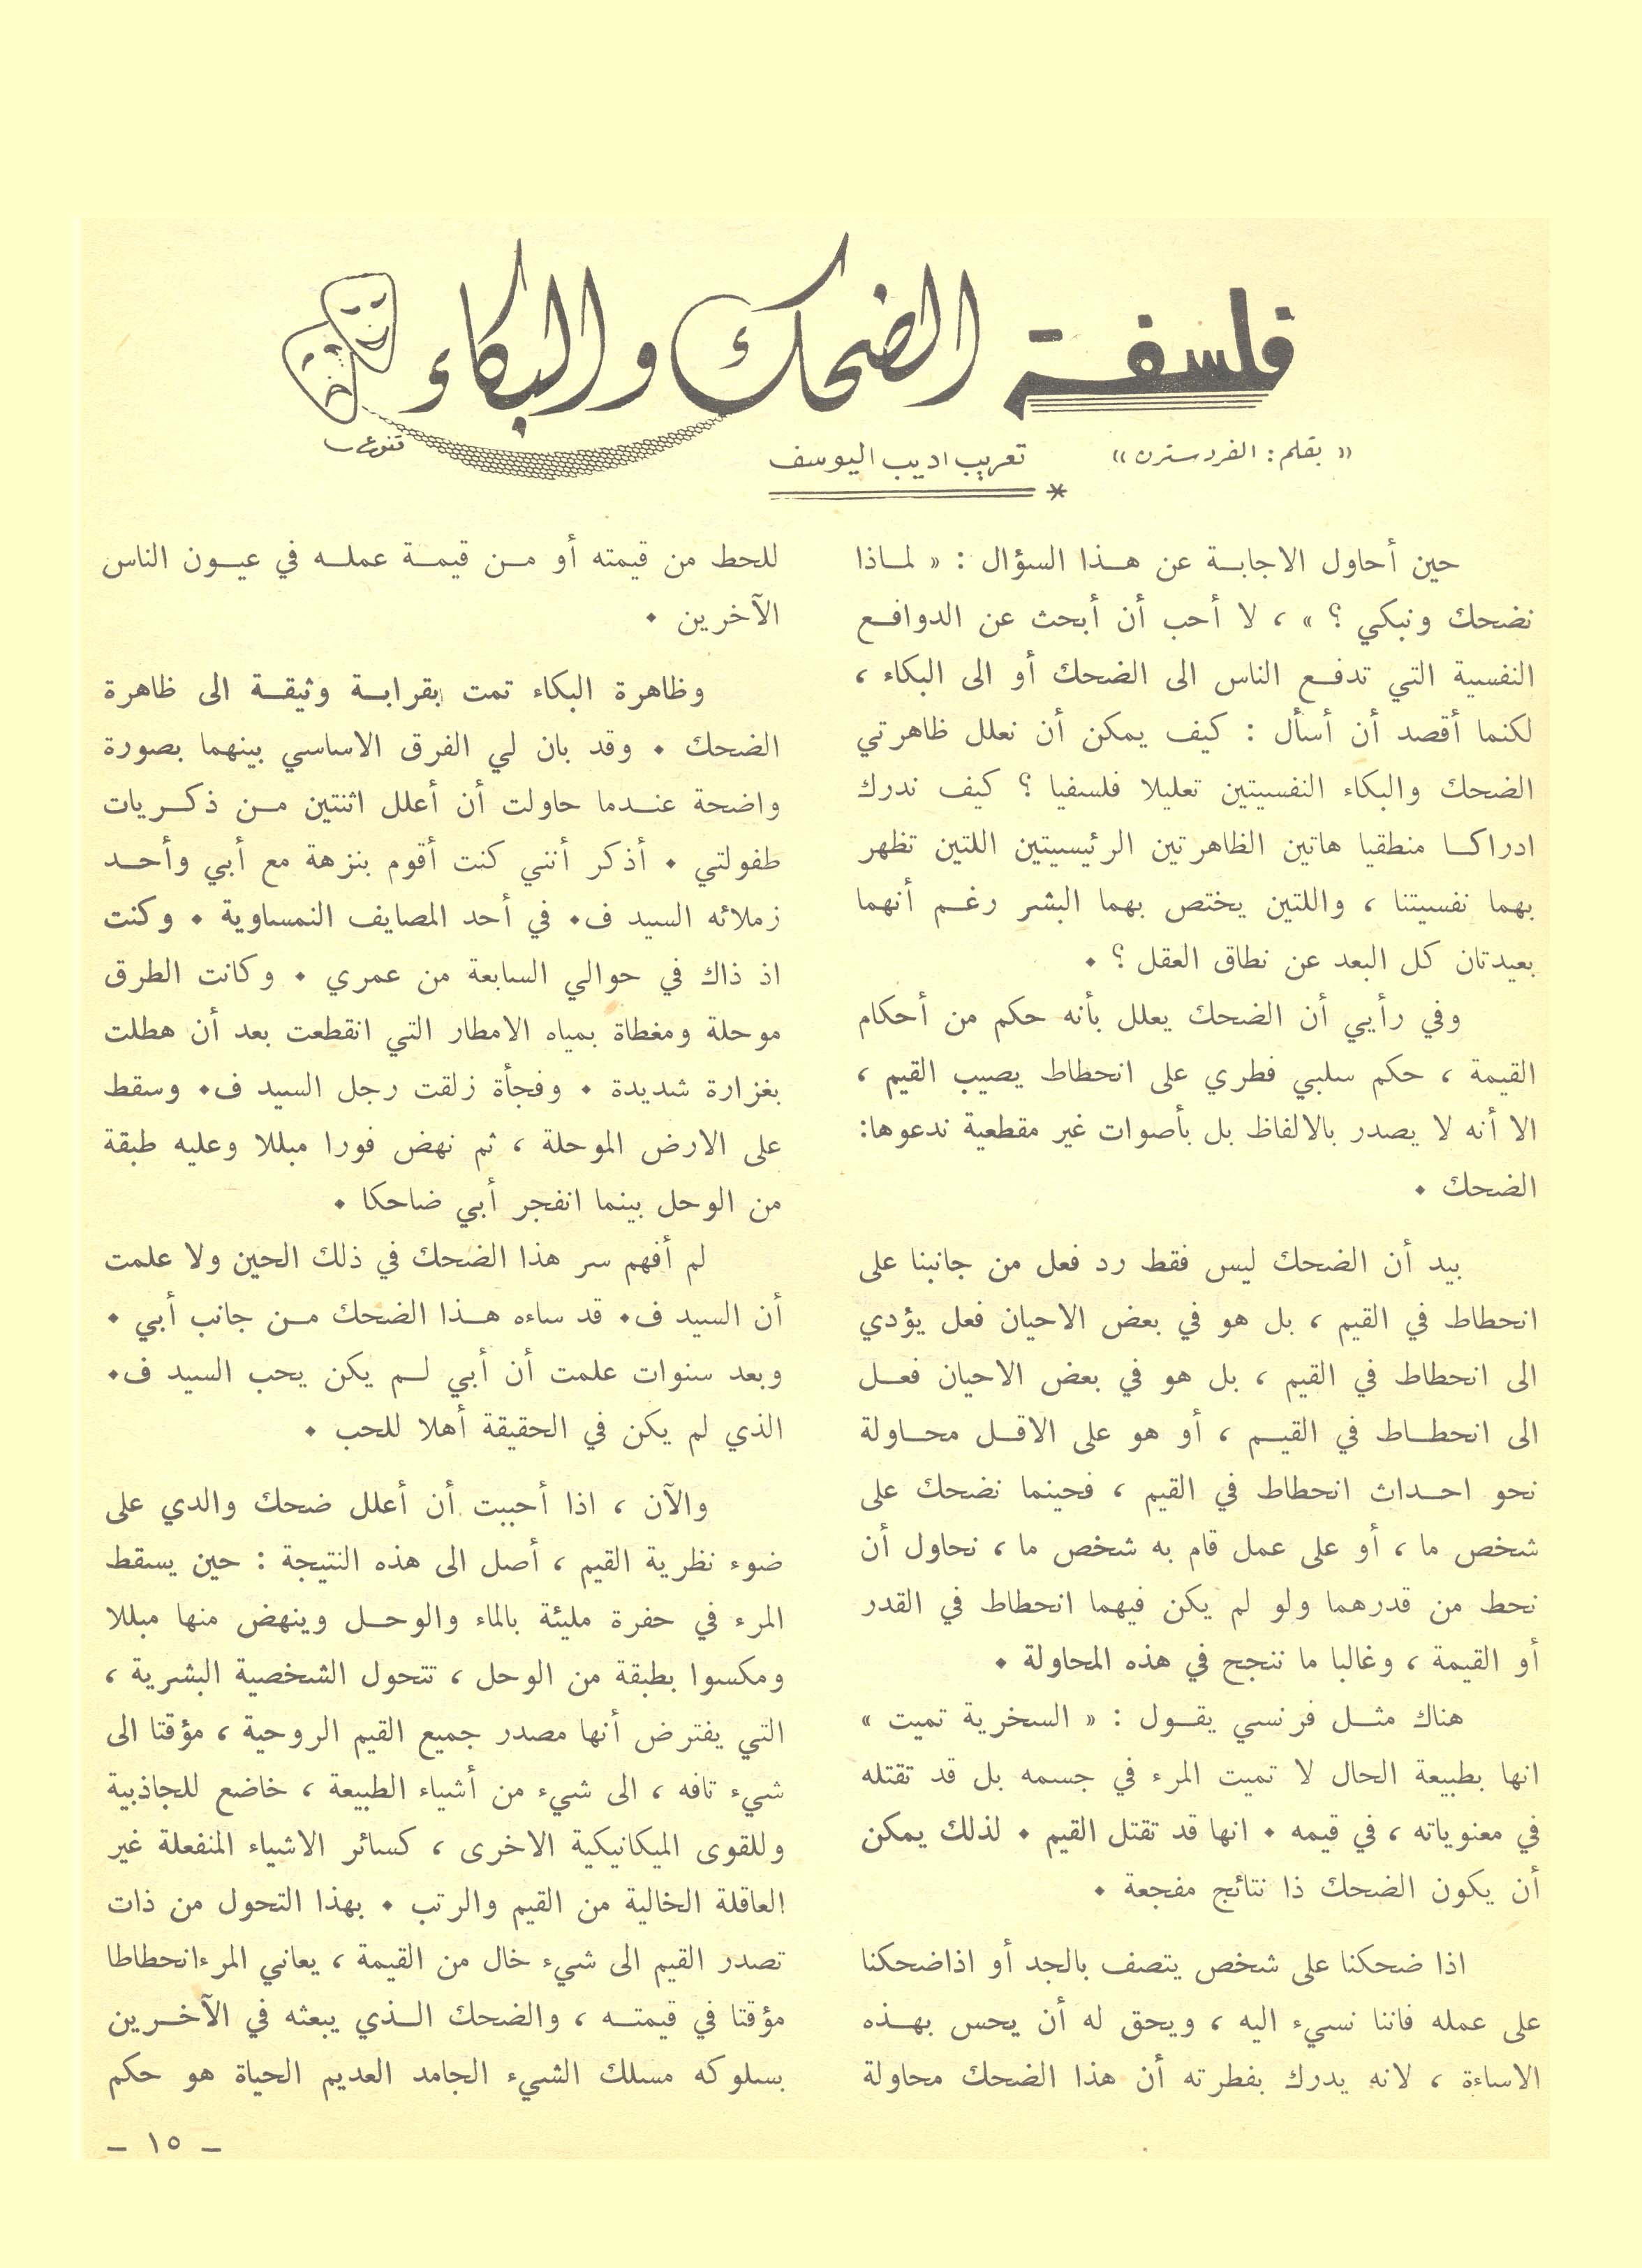 فلسفة الضحك والبكاء
« بقلم : الفرد سترن »
تعريب اديب اليوسف
*
حين أحاول الاجابة عن هذا السؤال : « لماذا
نضحك ونبكي ؟ » ، لا أحب أن أبحث عن الدوافع
النفسية التي تدفع الناس الى الضحك أو الى البكاء ،
لكنما أقصد أن أسأل : كيف يمكن أن نعلل ظاهرتي
الضحك والبكاء النفسيتين تعليلا فلسفيا ؟ كيف ندرك
ادراكا منطقيا هاتين الظاهرتين الرئيسيتين اللتين تظهر
بهما نفسيتنا ، واللتين يختص بهما البشر رغم أنهما
بعيدتان كل البعد عن نطاق العقل ؟ •
وفي رأيي أن الضحك يعلل بأنه حكم من أحكام
القيمة ، حكم سلبي فطري على انحطاط يصيب القيم ،
الا أنه لا يصدر بالالفاظ بل بأصوات غير مقطعية ندعوها:
الضحك •
بيد أن الضحك ليس فقط رد فعل من جانبنا على
انحطاط في القيم ، بل هو في بعض الاحيان فعل يؤدي
الى انحطاط في القيم ، بل هو في بعض الاحيان فعل
الى انحطاط في القيم ، أو هو على الاقل محاولة
نحو احداث انحطاط في القيم ، فحينما نضحك على
شخص ما ، أو على عمل قام به شخص ما ، نحاول أن
نحط من قدرهما ولو لم يكن فيهما انحطاط في القدر
أو القيمة ، وغالبا ما ننجح في هذه المحاولة •
هناك مثل فرنسي يقول : « السخرية تميت »
انها بطبيعة الحال لا تميت المرء في جسمه بل قد تقتله
في معنوياته ، في قيمه • انها قد تقتل القيم • لذلك يمكن
أن يكون الضحك ذا نتائج مفجعة •
اذا ضحكنا على شخص يتصف بالجد أو اذاضحكنا
على عمله فاننا نسيء اليه ، ويحق له أن يحس بهذه
الاساءة ، لانه يدرك بفطرته أن هذا الضحك محاولة
للحط من قيمته أو من قيمة عمله في عيون الناس
الآخرين •
وظاهرة البكاء تمت بقرابة وثيقة الى ظاهرة
الضحك • وقد بان لي الفرق الاساسي بينهما بصورة
واضحة عندما حاولت أن أعلل اثنتين من ذكريات
طفولتي • أذكر أنني كنت أقوم بنزهة مع أبي وأحد
زملائه السيد ف• في أحد المصايف النمساوية • وكنت
اذ ذاك في حوالي السابعة من عمري • وكانت الطرق
موحلة ومغطاة بمياه الامطار التي انقطعت بعد أن هطلت
بغزارة شديدة • وفجأة زلقت رجل السيد ف• وسقط
على الارض الموحلة ، ثم نهض فورا مبللا وعليه طبقة
من الوحل بينما انفجر أبي ضاحكا •
لم أفهم سر هذا الضحك في ذلك الحين ولا علمت
أن السيد ف• قد ساءه هذا الضحك من جانب أبي •
وبعد سنوات علمت أن أبي لم يكن يحب السيد ف•
الذي لم يكن في الحقيقة أهلا للحب •
والآن ، اذا أحببت أن أعلل ضحك والدي على
ضوء نظرية القيم ، أصل الى هذه النتيجة : حين يسقط
المرء في حفرة مليئة بالماء والوحل وينهض منها مبللا
ومكسوا بطبقة من الوحل ، تتحول الشخصية البشرية ،
التي يفترض أنها مصدر جميع القيم الروحية ، مؤقتا الى
شيء تافه ، الى شيء من أشياء الطبيعة ، خاضع للجاذبية
وللقوى الميكانيكية الاخرى ، كسائر الاشياء المنفعلة غير
العاقلة الخالية من القيم والرتب • بهذا التحول من ذات
تصدر القيم الى شيء خال من القيمة ، يعاني المرءانحطاطا
مؤقتا في قيمته ، والضحك الذي يبعثه في الآخرين
بسلوكه مسلك الشيء الجامد العديم الحياة هو حكم
– ١٥ –